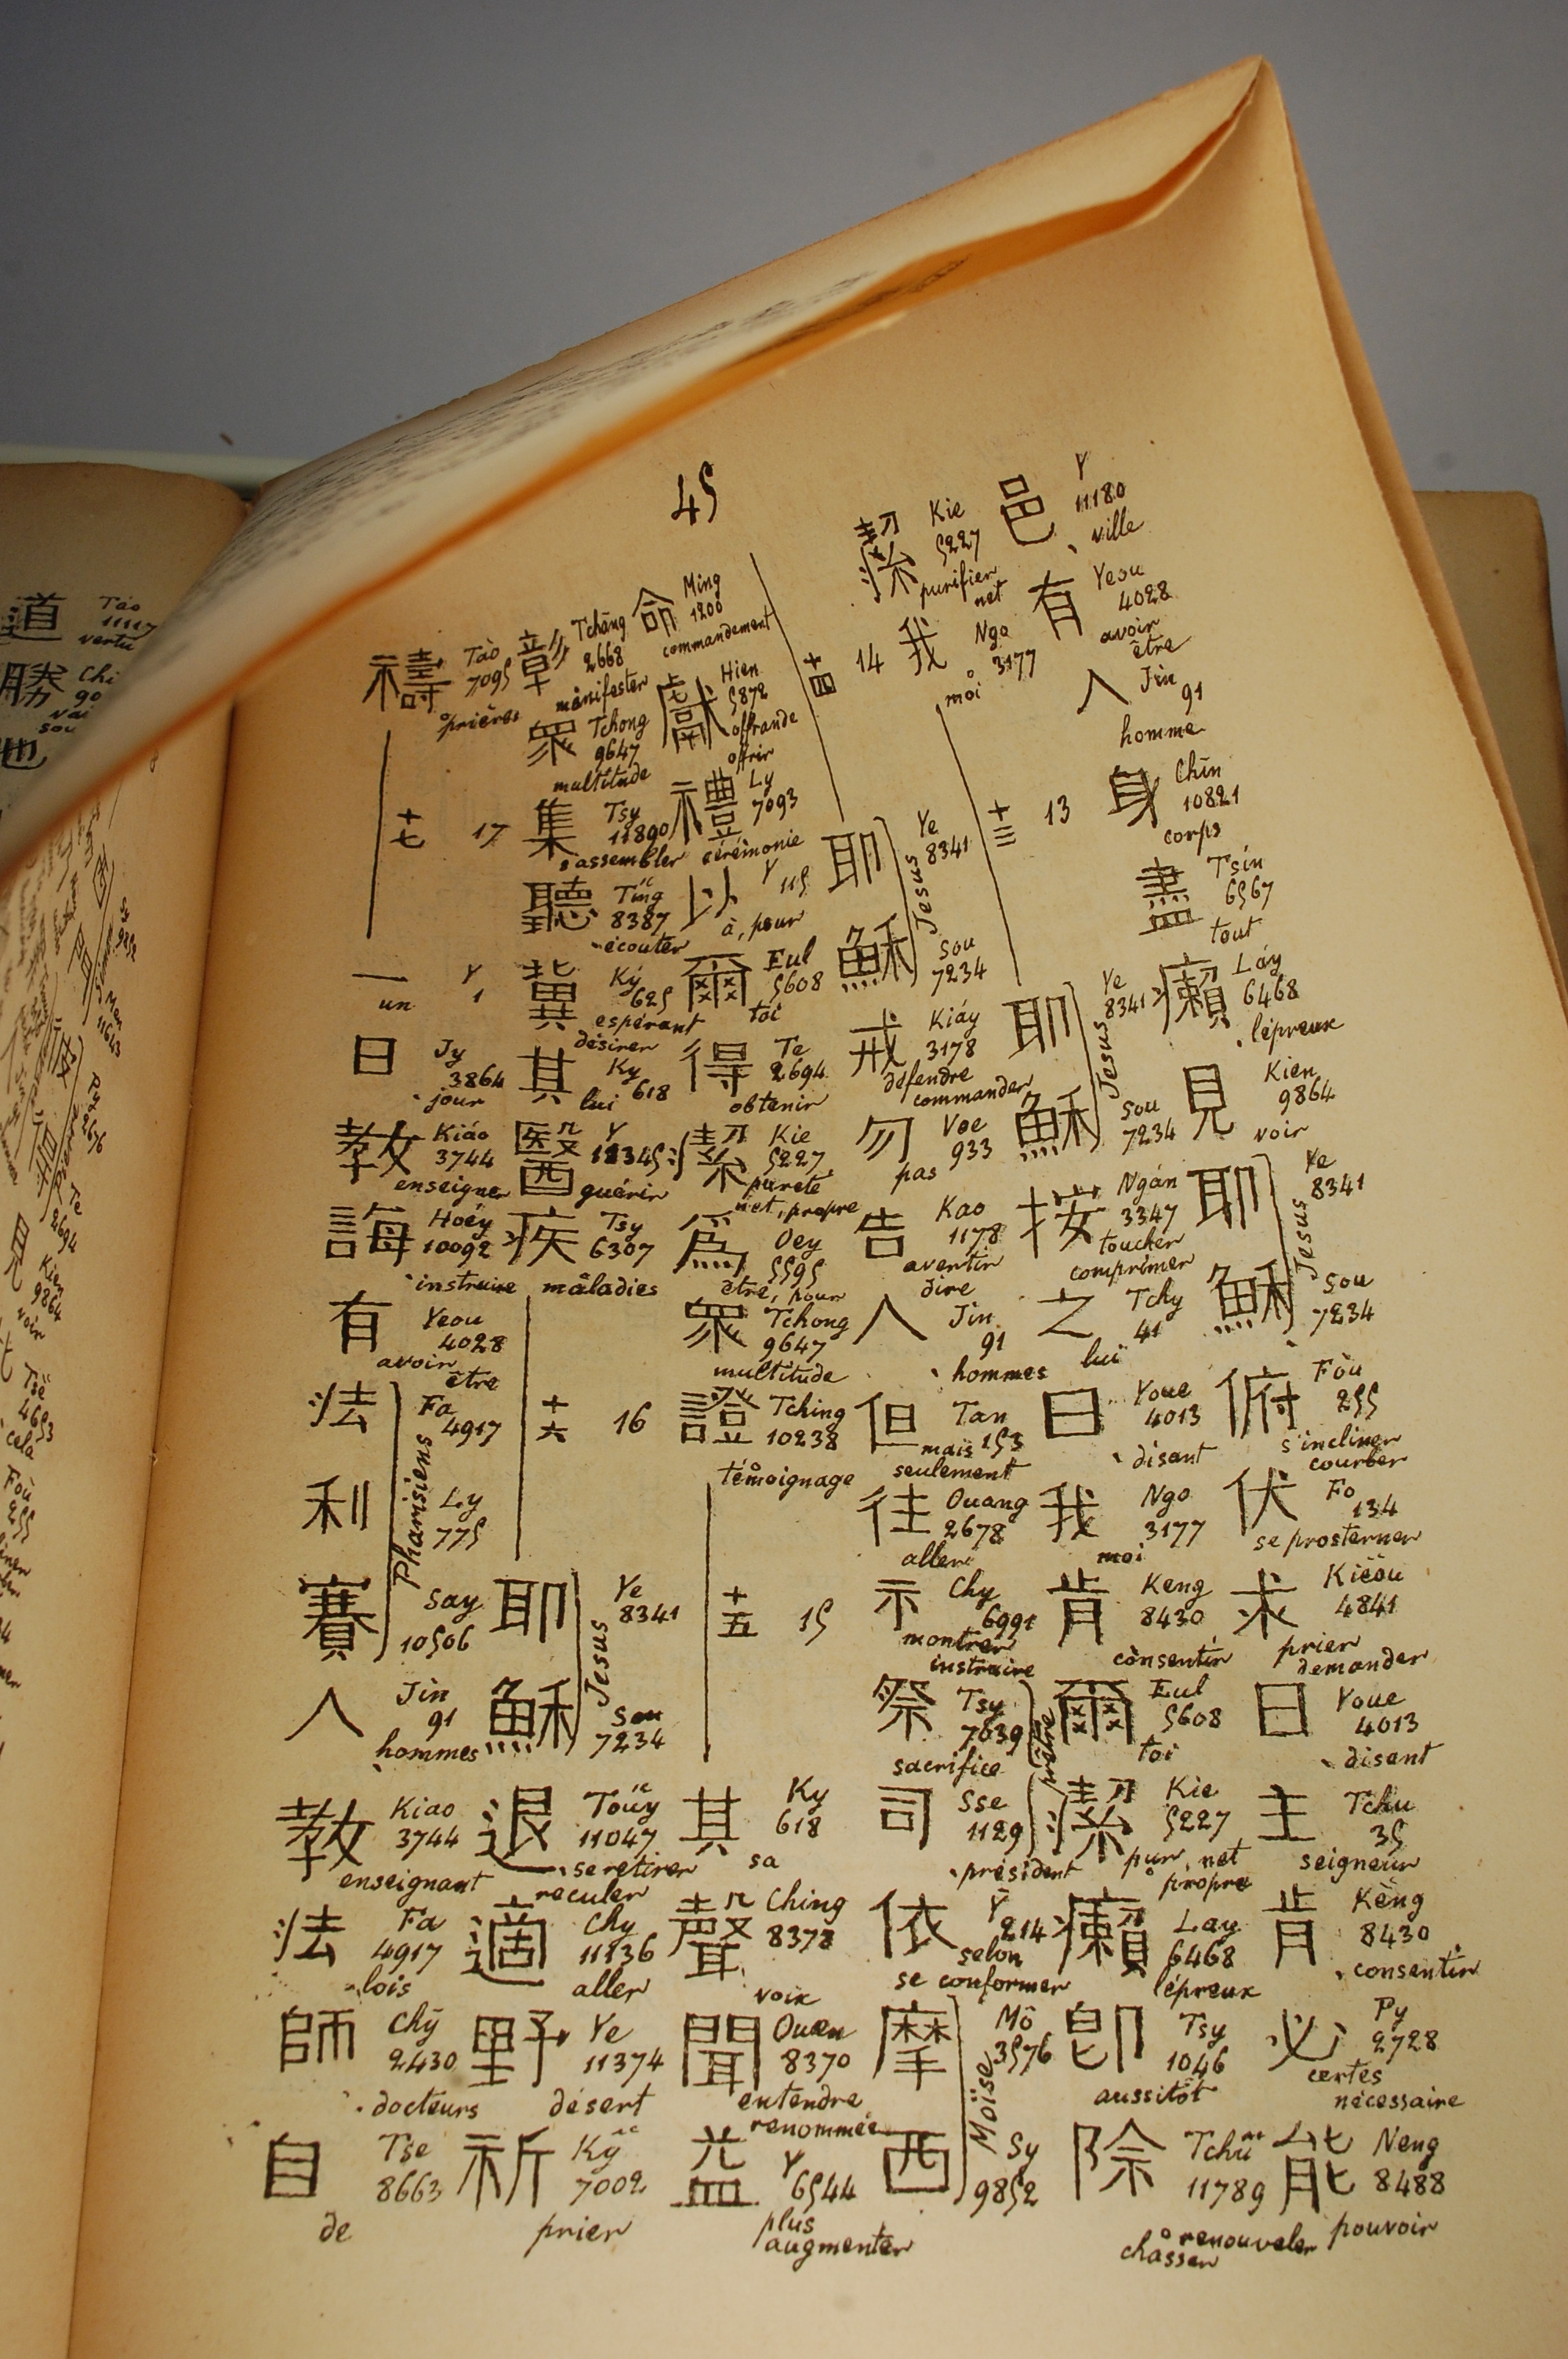 45
邑 Y 11180 ville
有 Yeou 4028 avoir être
人 Jin 91 homme
身 Chīn 10821 corps
盡 Tsín 6567 tout
癩 Láy 6468 lépreux
見 Kien 9864 voir
耶 Ye 8341
穌 Sou 7234
Jesus
俯 Fòu 255 s'incliner courber
伏 Fo 134 se prosterner
求 Kieôu 4841 prier demander
曰 Youe 4013 disant
主 Tchu 35 seigneur
肯 Kèng 8430 consentir
必 Py 2728 certes nécessaire
能 Neng 8488 pouvoir
潔 Kie 5227 purifier net
我 Ngo 3177 moi
十三 13
耶 Ye 8341
穌 Sou 7234
Jesus
按 Ngán 3347 toucher comprimer
之 Tchy 41 lui
曰 Youe 4013 disant
我 Ngo 3177 moi
肯 Keng 8430 consentir
爾 Eul 5608 toi
潔 Kie 5227 pur, net propre
癩 Lay 6468 lépreux
卽 Tsy 1046 aussitôt
除 Tchû 11789 renouveler chasser
十四 14
耶 Ye 8341
穌 Sou 7234
Jesus
戒 Kiáy 3178 défendre commander
勿 Voe 933 pas
告 Kao 1178 avertir dire
人 Jin 91 hommes
但 Tan 153 mais seulement
往 Ouang 2678 aller
示 Chy 6991 montrer instruire
祭 Tsy 7039 sacrifice
司 Sse 1129 président
prêtre
依 Y 214 selon se conformer
摩 Mô 3576
西 Sy 9852
Moïse
命 Ming 1200 commandement
獻 Hien 5872 offrande offrir
禮 Ly 7093 cérémonie
以 Y 115 à, pour
爾 Eul 5608 toi
得 Te 2694 obtenir
潔 Kie 5227 pureté net, propre
爲 Oey 5595 être, pour
眾 Tchong 9647 multitude
證 Tching 10238 témoignage
十五 15
其 Ky 618 sa
聲 Ching 8378 voix
聞 Ouen 8370 entendre renommée
益 Y 6544 plus augmenter
彰 Tchāng 2668 manifester
眾 Tchong 9647 multitude
集 Tsy 11890 s'assembler
聽 Ting 8387 écouter
冀 Ký 625 espérant désirer
其 Ky 618 lui
醫 Y 11345 guérir
疾 Tsy 6307 maladies
十六 16
耶 Ye 8341
穌 Sou 7234
Jesus
退 Toúy 11047 se retirer reculer
適 Chy 11136 aller
野 Ye 11374 désert
祈 Ky 7002 prier
禱 Tào 7095 prières
十七 17
一 Y 1 un
日 Jy 3864 jour
教 Kiáo 3744 enseigner
誨 Hoéy 10092 instruire
有 Yeou 4028 avoir être
法 Fa 4917
利 Ly 775
賽 Say 10506
Pharisiens
人 Jin 91 hommes
教 Kiao 3744 enseignant
法 Fa 4917 lois
師 Chy 2430 docteurs
自 Tse 8663 de
道 Táo 11117 vertu
勝
也